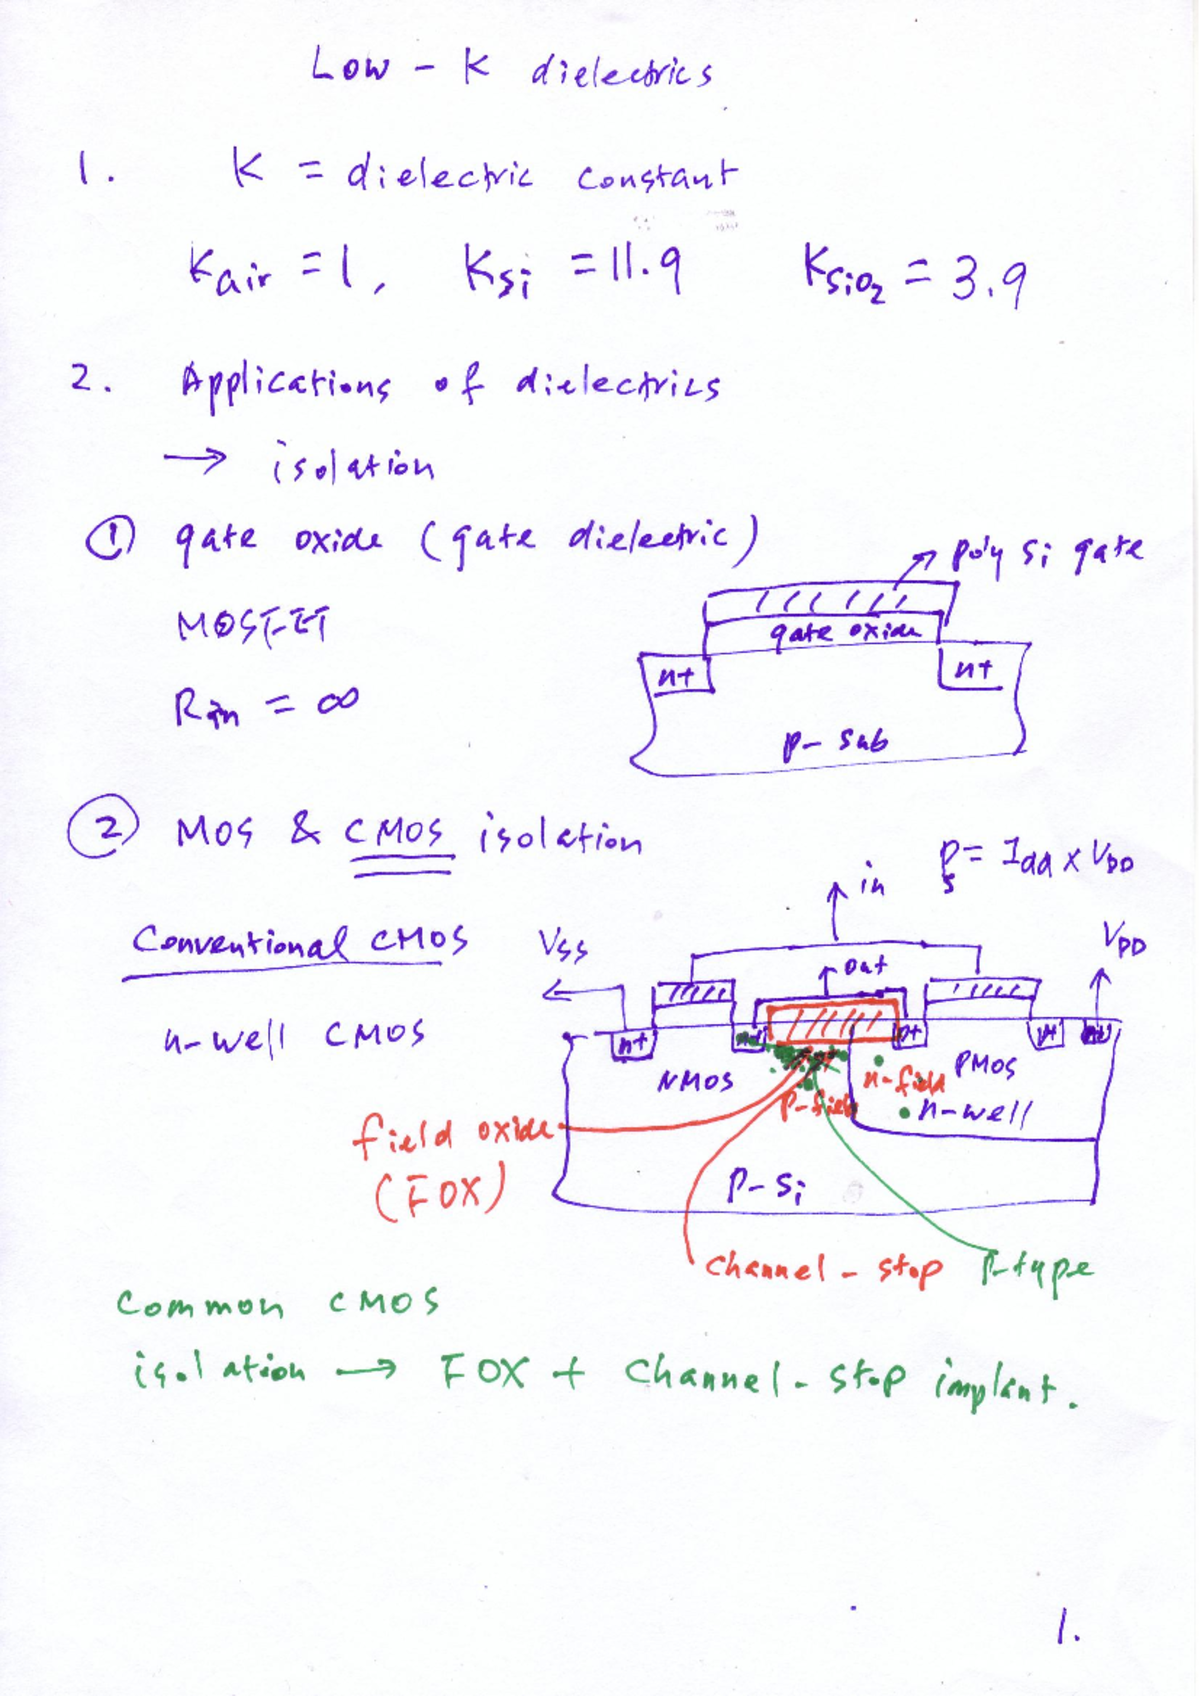 Low - K dielectrics
1. K = dielectric constant
Kair = 1, KSi = 11.9 KSiO2 = 3.9
2. Applications of dielectrics
→ isolation
① gate oxide (gate dielectric)
poly Si gate
MOSFET
gate oxide
n+ n+
Rin = ∞
p- sub
② MOS & CMOS isolation
in
Ps = Idd x VDD
Conventional CMOS
VSS
out
VDD
n-well CMOS
n+ n+ p+ p+ n+
NMOS
n-field
PMOS
p-field
n-well
field oxide
(FOX)
p-Si
channel - stop
p-type
Common CMOS
isolation → FOX + Channel - stop implant.
1.